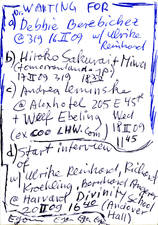 ..WANTING FOR
a) Debbie Berebichez
@ 319 16 II 09 w/ Ulrike
Reinhard
b) Hiroko Sakurai + Miwa
(tomorrowland
17 II 09 319
c) Andrea Leminske
@ Alexhotel 205 E 45th
+ Wolf Ebeling Wed
(ex COO LHW.com) 18 II 09
1145
d) Start interview
of
w/ Ulrike Reinhard, Rickert
Kroehling, Bernhard
@ Harvard Divinity School
20 II 09 1640 (Andover
Hall)